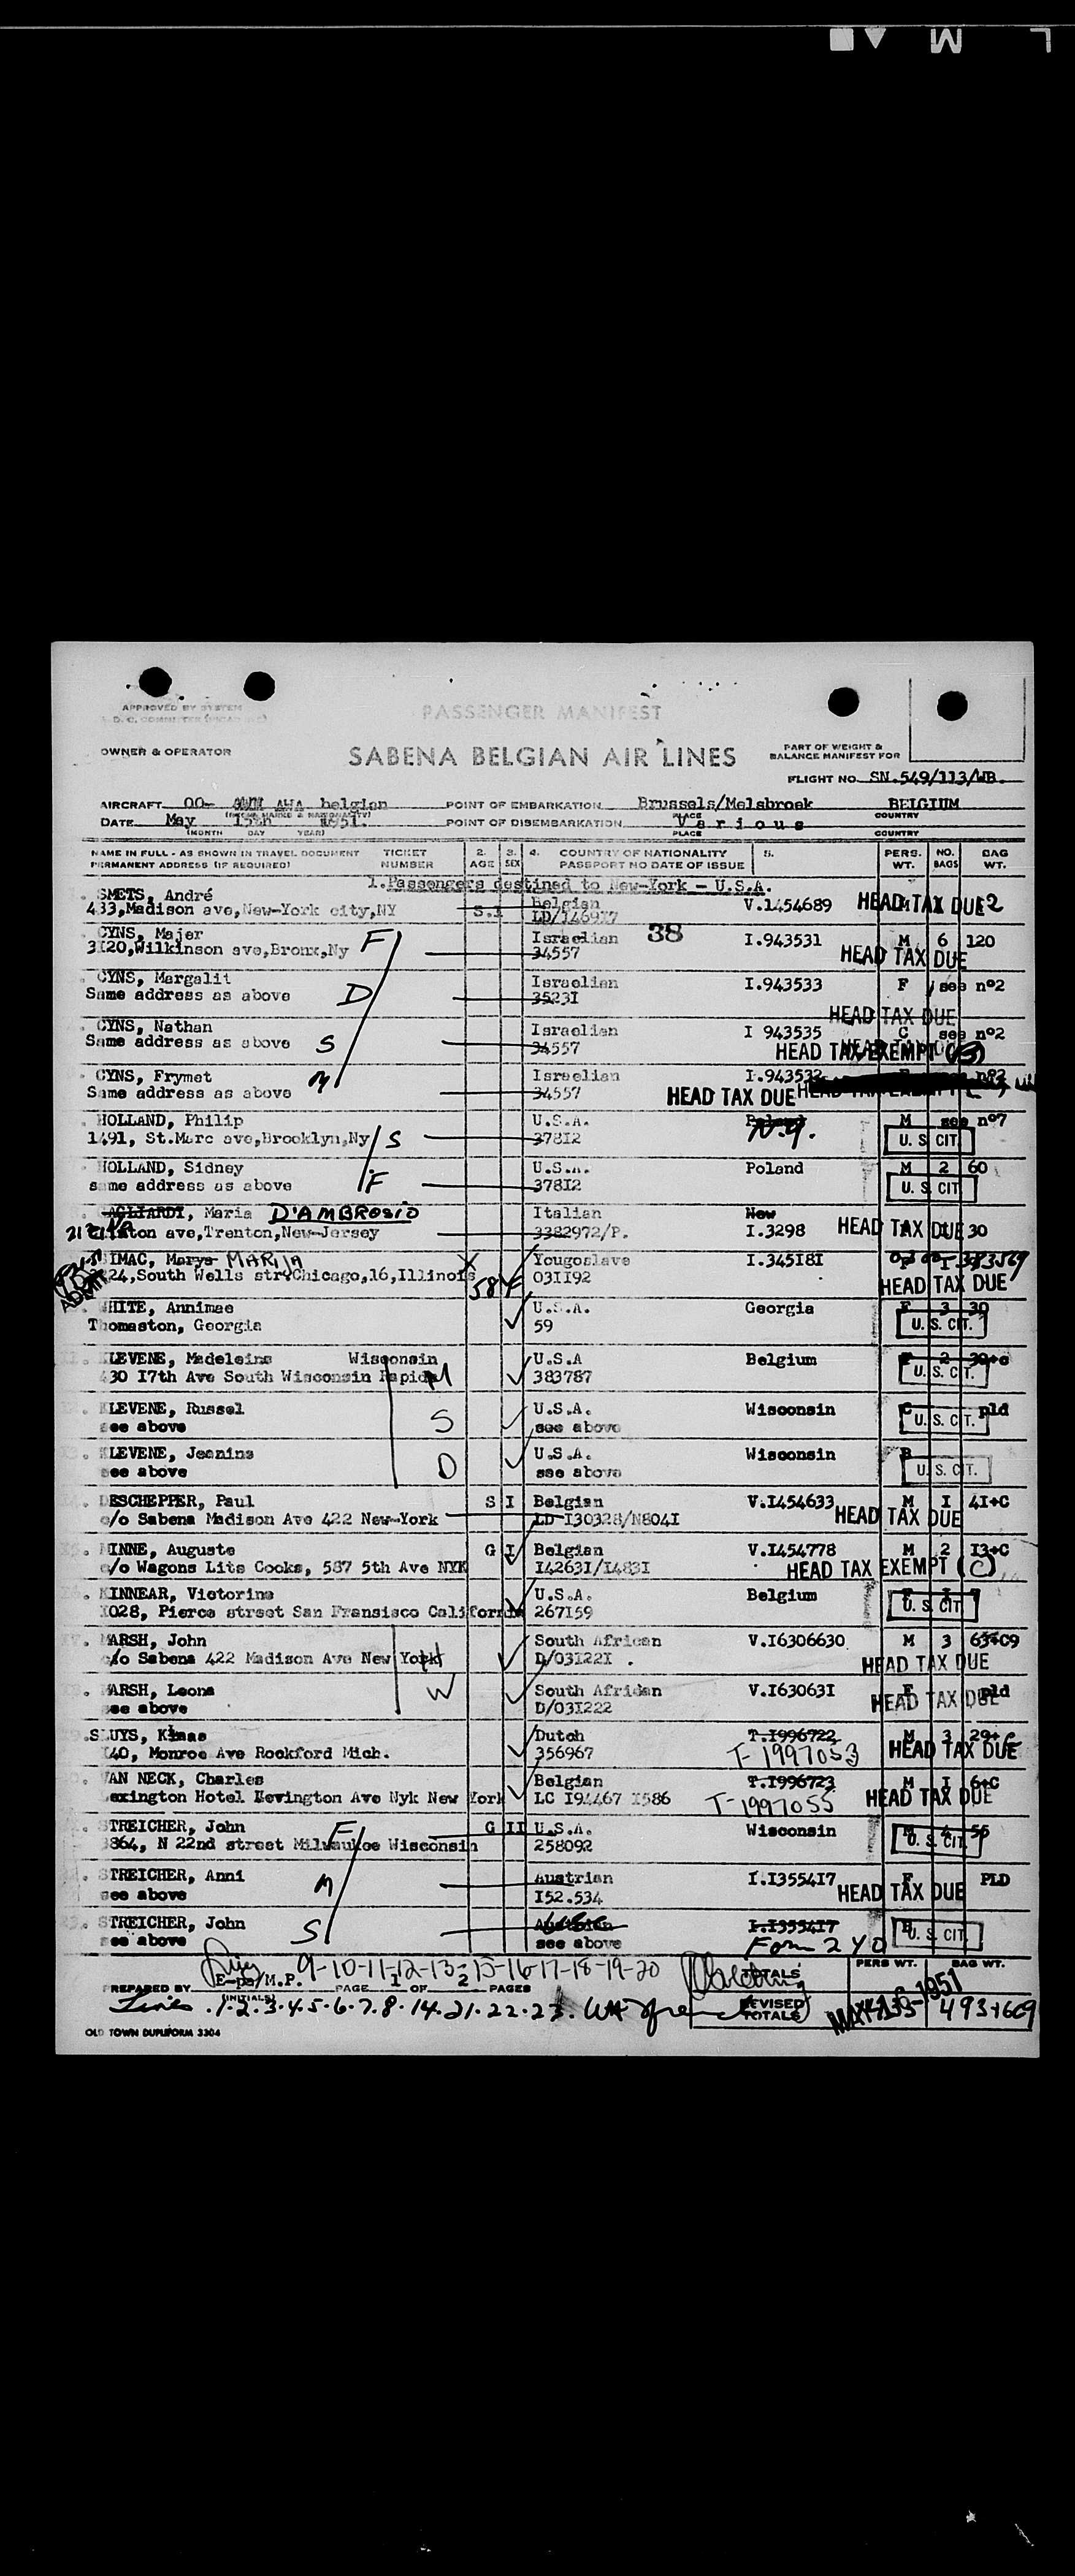 APPROVED BY SYSTEM
PASSENGER MANIFEST
OWNER & OPERATOR
SABENA BELGIAN AIR LINES
PART OF WEIGHT &
BALANCE MANIFEST FOR
FLIGHT NO. SN.549/113/WB.
AIRCRAFT OO- AWA belgian POINT OF EMBARKATION Brussels/Melsbroek BELGIUM
DATE May 15th 1951. POINT OF DISEMBARKATION Various
(MONTH DAY YEAR) PLACE COUNTRY
NAME IN FULL - AS SHOWN IN TRAVEL DOCUMENT TICKET 2. 3. 4. COUNTRY OF NATIONALITY 5. PERS. NO. BAG
PERMANENT ADDRESS (IF REQUIRED) NUMBER AGE SEX PASSPORT NO DATE OF ISSUE WT. BAGS WT.
1.Passengers destined to New-York - U.S.A.
SMETS, André Belgian V.1454689 HEAD TAX DUE
433,Madison ave,New-York city,NY S.1
38
CYNS, Majer F Israelian I.943531 M 6 120
3120,Wilkinson ave,Bronx,Ny 34557 HEAD TAX DUE
CYNS, Margalit Israelian I.943533 F see nº2
Same address as above D 35231 HEAD TAX DUE
CYNS, Nathan Israelian I 943535 C see nº2
Same address as above S 34557 HEAD TAX EXEMPT
CYNS, Frymet M Israelian I.943532
Same address as above 34557 HEAD TAX DUE
HOLLAND, Philip U.S.A. Poland M see nº7
1491, St.Marc ave,Brooklyn,Ny S 37812 N.Y. U. S. CIT.
HOLLAND, Sidney U.S.A. Poland M 2 60
same address as above F 37812 U. S. CIT.
GAGLIARDI, Maria D'AMBROSIO Italian New
ton ave,Trenton,New-Jersey 3382972/P. I.3298 HEAD TAX DUE 30
SIMAC, Marya MARIJA Yougoslave I.345181
ADMIT 2824,South Wells str,Chicago,16,Illinois 58 F 031192 HEAD TAX DUE
WHITE, Annimae U.S.A. Georgia F 3 30
Thomaston, Georgia 59 U. S. CIT.
KLEVENE, Madeleine Wisconsin U.S.A Belgium F 2 30+c
430 17th Ave South Wisconsin Rapids M 383787 U. S. CIT.
KLEVENE, Russel U.S.A. Wisconsin C pld
see above S see above U. S. CIT.
KLEVENE, Jeanine U.S.A. Wisconsin B
see above D see above U. S. CIT.
DESCHEPPER, Paul S I Belgian V.I454633 M I 4I+C
c/o Sabena Madison Ave 422 New-York LD I30328/N804I HEAD TAX DUE
MINNE, Auguste G I Belgian V.I454778 M 2 I3+C
c/o Wagons Lits Cooks, 587 5th Ave NYK I4263I/I483I HEAD TAX EXEMPT (C)
KINNEAR, Victorine U.S.A. Belgium
1028, Pierce street San Fransisco California 267159 U. S. CIT.
MARSH, John South African V.I6306630 M 3 65+C9
c/o Sabena 422 Madison Ave New York H D/03I22I . HEAD TAX DUE
MARSH, Leona W South African V.I63063I F pld
see above D/03I222 HEAD TAX DUE
SLUYS, Klaas Dutch T.I996722 M 3 29+C
140, Monroe Ave Rockford Mich. 356967 T-1997053 HEAD TAX DUE
VAN NECK, Charles Belgian T.I996723 M I 6+C
Lexington Hotel Lexington Ave Nyk New York LC I94467 I586 T-1997055 HEAD TAX DUE
STREICHER, John F G II U.S.A. Wisconsin M 4 55
3864, N 22nd street Milwaukee Wisconsin 258092 U. S. CIT.
STREICHER, Anni M Austrian I.I3554I7 F PLD
see above I52.534 HEAD TAX DUE
STREICHER, John Austrian I.I3554I7 B
see above S see above Form 240 U. S. CIT.
9-10-11-12-13-15-16-17-18-19-20 TOTALS PERS WT. BAG WT.
PREPARED BY E-pe/M.P. PAGE 1 OF 2 PAGES
(INITIALS)
Lines 1-2-3-4-5-6-7-8-14-21-22-23. REVISED TOTALS 1951 493+609
OLD TOWN DUPLIFORM 3304